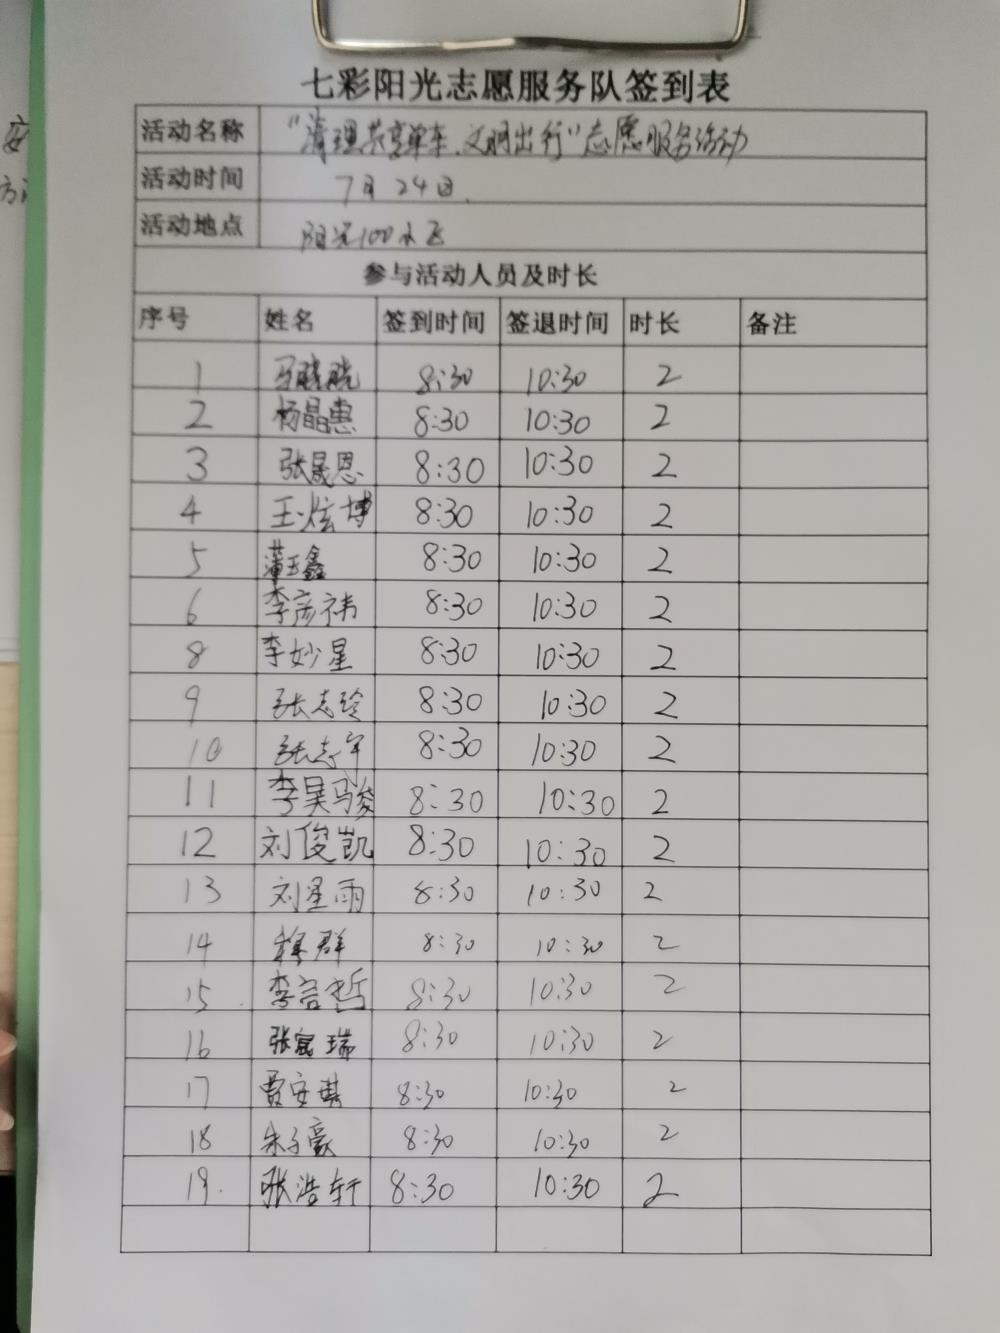 七彩阳光志愿服务队签到表
活动名称 "清理共享单车、文明出行"志愿服务活动
活动时间 7月24日.
活动地点 阳光100
参与活动人员及时长
序号 姓名 签到时间 签退时间 时长 备注
1 马晓晓 8:30 10:30 2
2 杨晶惠 8:30 10:30 2
3 张晟恩 8:30 10:30 2
4 王炫博 8:30 10:30 2
5 蒲玉鑫 8:30 10:30 2
6 李彦祎 8:30 10:30 2
8 李妙星 8:30 10:30 2
9 张志玲 8:30 10:30 2
10 张志宇 8:30 10:30 2
11 李昊骏 8:30 10:30 2
12 刘俊凯 8:30 10:30 2
13 刘星雨 8:30 10:30 2
14 群 8:30 10:30 2
15 李言哲 8:30 10:30 2
16 张宸瑞 8:30 10:30 2
17 贾安琪 8:30 10:30 2
18 朱子豪 8:30 10:30 2
19. 张浩轩 8:30 10:30 2